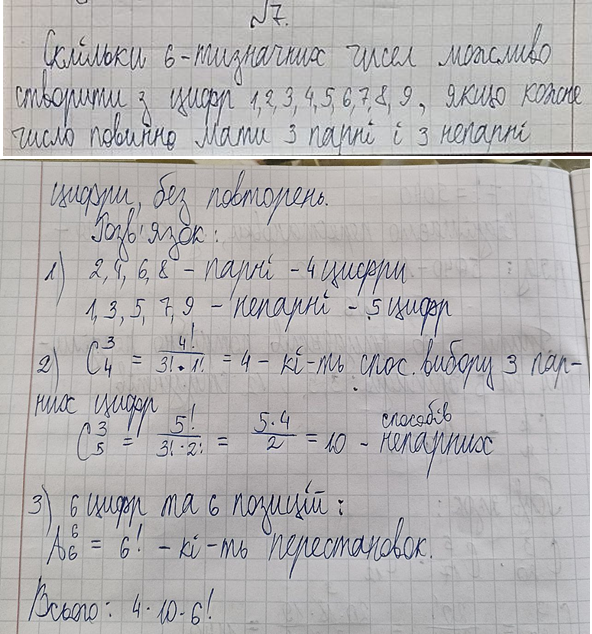 №7.
Скільки 6-тизначних чисел можливо
створити з цифр 1,2,3,4,5,6,7,8,9, якщо кожне
число повинно мати 3 парні і 3 непарні
цифри, без повторень.
Розв'язок:
1) 2,4,6,8 - парні - 4 цифри
1,3,5,7,9 - непарні - 5 цифр
2) C₄³ = 4!/(3!·1!) = 4 - кі-ть спос. вибору 3 пар-
них цифр
C₅³ = 5!/(3!·2!) = (5·4)/2 = 10 - способів непарних
3) 6 цифр та 6 позицій:
A₆⁶ = 6! - кі-ть перестановок.
Всього: 4·10·6!